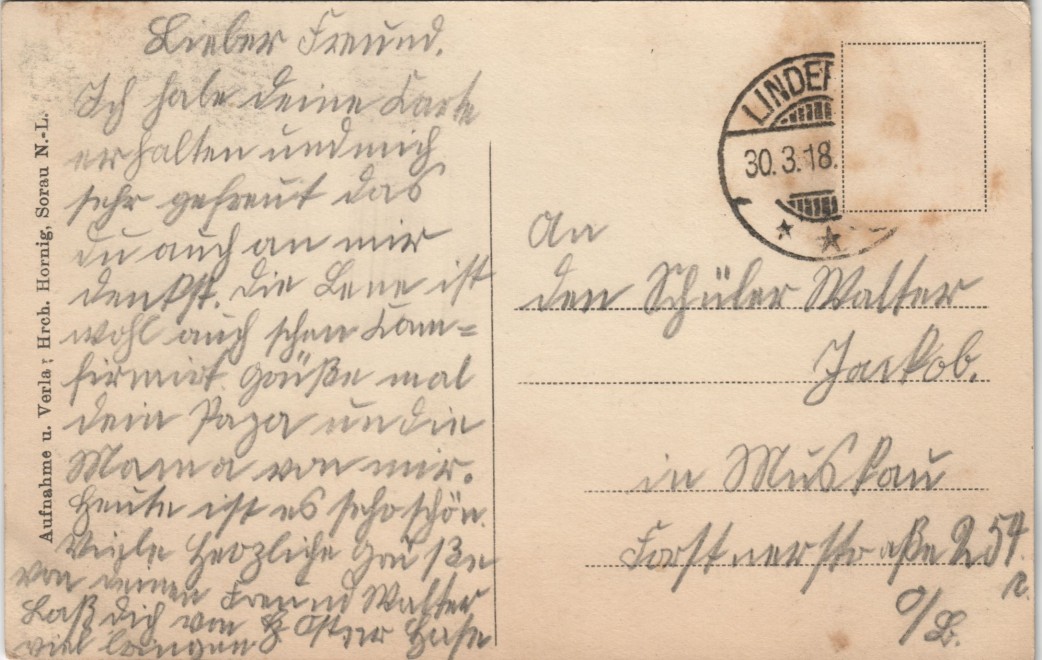 Aufnahme u. Verlag: Hrch. Hornig, Sorau N.-L.
Lieber Freund.
Ich habe deine Karte
erhalten und mich
sehr gefreut das
du auch an mir
denkst. Die Lene ist
wohl auch schon Kom=
firmirt. Grüße mal
dein Papa und die
Mama von mir.
Heute ist es sehr schön.
Viele Herzliche Grüße
von deinen Freund Walter
Laß dich vom Oster Hase
viel bringen
LINDER
30.3.18.
An
den Schüler Walter
Jackob.
in Muskau
Forstnerstraße 254.
O/L.